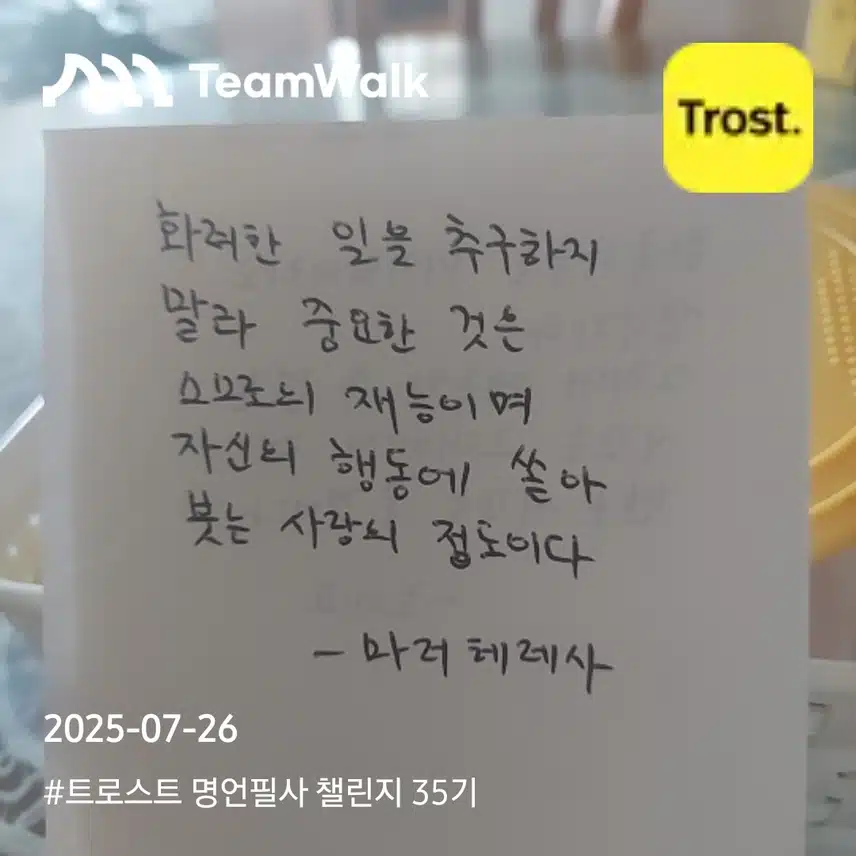 TeamWalk
Trost.
화려한 일을 추구하지
말라 중요한 것은
스스로의 재능이며
자신의 행동에 쏟아
붓는 사랑의 정도이다
- 마더 테레사
2025-07-26
#트로스트 명언필사 챌린지 35기